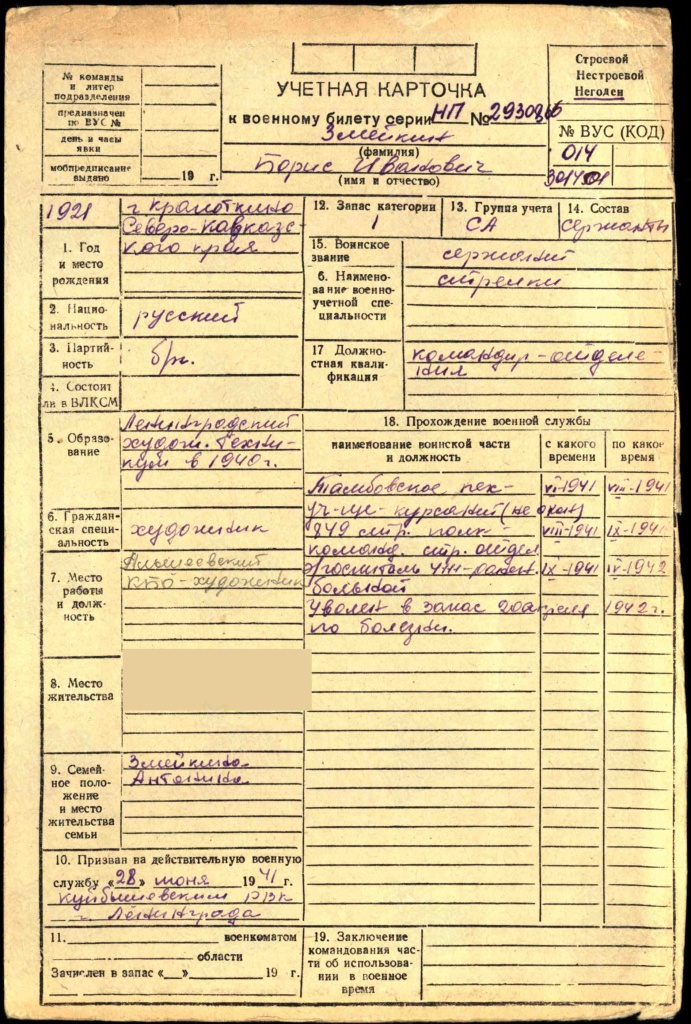 № команды
и литер
подразделения
предназначен
по ВУС №
день и часы
явки
мобпредписание
выдано
19 г.
УЧЕТНАЯ КАРТОЧКА
к военному билету серии НП №
Змейкин
(фамилия)
Борис Иванович
(имя и отчество)
Строевой
Нестроевой
Негоден
№ ВУС (КОД)
014
1921
г. Кропоткино
Северо-Кавказс-
кого края
1. Год
и место
рождения
2. Нацио-
нальность
русский
3. Партий-
ность
б/п.
4. Состоит
ли в ВЛКСМ
5. Образо-
вание
Ленинградский
худож. техни-
кум в 1940 г.
6. Граждан-
ская специ-
альность
художник
7. Место
работы
и долж-
ность
художник
8. Место
жительства
9. Семей-
ное поло-
жение
и место
жительства
семьи
Змейкина
Антонина
10. Призван на действительную военную
службу «28» июня 1941 г.
Куйбышевским РВК
г. Ленинграда
11. военкоматом
области
Зачислен в запас « » 19 г.
12. Запас категории
1
13. Группа учета
СА
14. Состав
сержанты
15. Воинское
звание
сержант
6. Наимено-
вание военно-
учетной спе-
циальности
стрелки
17 Должно-
стная квали-
фикация
командир-отделе-
ния
18. Прохождение военной службы
наименование воинской части
и должность
с какого
времени
по какое
время
Тамбовское пех- VI-1941 VIII-1941
уч-ще- курсант (не оконч)
849 стр. полк- VIII-1941 IX-1941
команд. стр. отдел.
э/госпиталь IX-1941 IV-1942
больной
Уволен в запас 20 апреля 1942 г.
по болезни.
19. Заключение
командования час-
ти об использова-
нии в военное
время